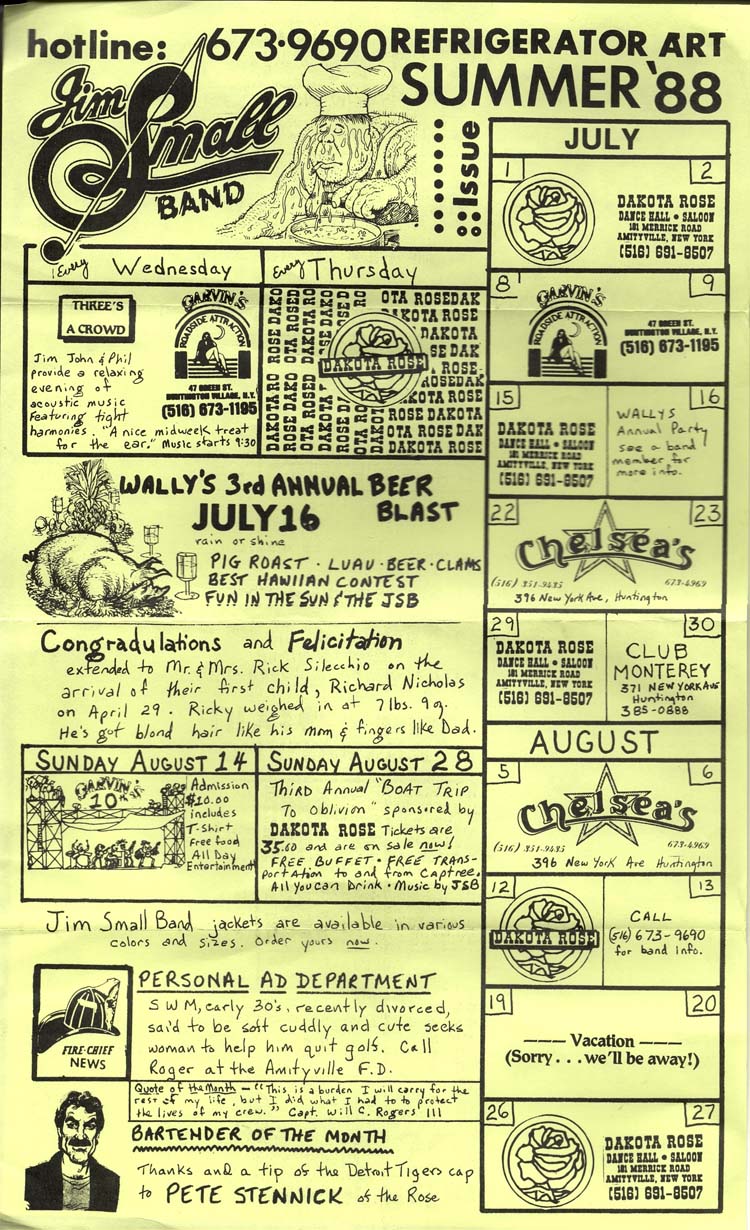 hotline: 673·9690 REFRIGERATOR ART
SUMMER '88
Jim Small
BAND
Issue
Every Wednesday
THREE'S
A CROWD
Jim John & Phil
provide a relaxing
evening of
acoustic music
Featuring tight
harmonies. "A nice midweek treat
for the ear." Music starts 9:30
GARVIN'S
ROADSIDE ATTRACTION
47 GREEN ST.
HUNTINGTON VILLAGE, N.Y.
(516) 673-1195
Every Thursday
OTA ROSEDAK
DAKOTA ROSE
ROSE DAKOTA
DAKOTA ROSE
WALLY'S 3rd ANNUAL BEER
BLAST
JULY 16
rain or shine
PIG ROAST · LUAU · BEER · CLAMS
BEST HAWIIAN CONTEST
FUN IN THE SUN & THE JSB
Congradulations and Felicitation
extended to Mr. & Mrs. Rick Silecchio on the
arrival of their first child, Richard Nicholas
on April 29. Ricky weighed in at 7 lbs. 9 oz.
He's got blond hair like his mom & fingers like Dad.
SUNDAY AUGUST 14
GARVIN'S
10th
Admission
$10.00
includes
T-Shirt
Free food
All Day
Entertainment
SUNDAY AUGUST 28
THIRD Annual "BOAT TRIP
To Oblivion" sponsored by
DAKOTA ROSE Tickets are
35.00 and are on sale now!
FREE BUFFET · FREE TRANS-
PORTATION to and from Captree.
All You can Drink · Music by JSB
Jim Small Band jackets are available in various
colors and sizes. Order yours now.
FIRE-CHIEF
NEWS
PERSONAL AD DEPARTMENT
SWM, early 30's, recently divorced,
said to be soft cuddly and cute seeks
woman to help him quit golf. Call
Roger at the Amityville F.D.
Quote of the Month — "This is a burden I will carry for the
rest of my life, but I did what I had to to protect
the lives of my crew." Capt. Will C. Rogers III
BARTENDER OF THE MONTH
Thanks and a tip of the Detroit Tigers cap
to PETE STENNICK of the Rose
JULY
1 2
DAKOTA ROSE
DANCE HALL • SALOON
181 MERRICK ROAD
AMITYVILLE, NEW YORK
(516) 691-8507
8 9
GARVIN'S
ROADSIDE ATTRACTION
47 GREEN ST.
HUNTINGTON VILLAGE, N.Y.
(516) 673-1195
15
DAKOTA ROSE
DANCE HALL • SALOON
181 MERRICK ROAD
AMITYVILLE, NEW YORK
(516) 691-8507
16
WALLYS
Annual Party
see a band
member for
more info.
22 23
Chelsea's
(516) 351-9435 673-4969
396 New York Ave, Huntington
29
DAKOTA ROSE
DANCE HALL • SALOON
181 MERRICK ROAD
AMITYVILLE, NEW YORK
(516) 691-8507
30
CLUB
MONTEREY
371 NEW YORK AVE
Huntington
385-0888
AUGUST
5 6
Chelsea's
(516) 351-9435 673-4969
396 New York Ave Huntington
12
DAKOTA ROSE
13
CALL
(516) 673-9690
for band info.
19 20
—— Vacation ——
(Sorry . . . we'll be away!)
26 27
DAKOTA ROSE
DANCE HALL • SALOON
181 MERRICK ROAD
AMITYVILLE, NEW YORK
(516) 691-8507